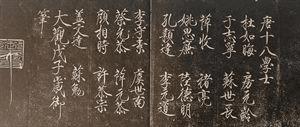 唐十八學士
杜如晦 房元齡
于志寧 蘇世長
薛收 褚亮
姚思廉 陸德明
孔穎達 李元道
李守素 虞世南
蔡允恭 薛元
顏相時 許敬宗
蓋文達 蘇勗
大觀戊子歲御
筆